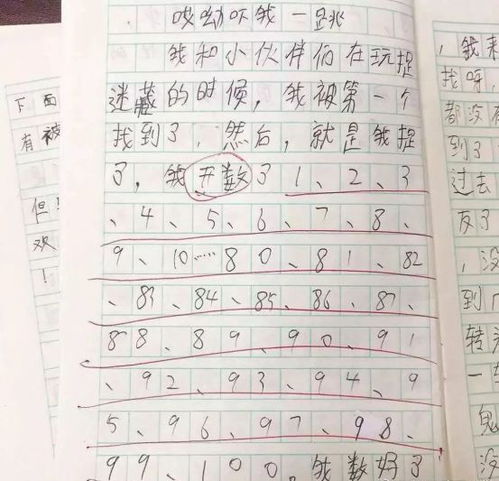 哎呦吓我一跳
我和小伙伴们在玩捉
迷藏的时候，我被第一个
找到了，然后，就是我捉
了，我开数了1、2、3
、4、5、6、7、8、
9、10……80、81、82
、83、84、85、86、87、
88、89、90、91
、92、93、94、9
5、96、97、98、
99、100，我数好了
下面
有被
但
欢
！
，我来
找呀，
都没有
到了
过去
反了
，没
到
转
一
鬼
没